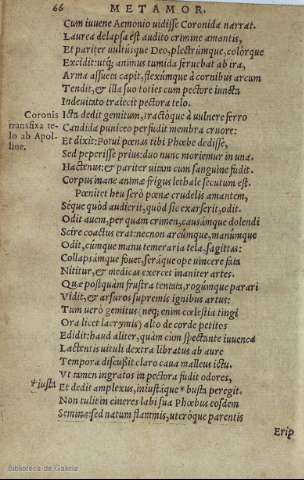 66 METAMOR.
Cum iuuene Aemonio uidisse Coronida narrat.
Laurea delapsa est audito crimine amantis,
Et pariter uultúsque Deo, plectrúmque, colórque
Excidit: utq́; animus tumida feruebat ab ira,
Arma assueta capit, flexúmque à cornibus arcum
Tendit, & illa suo toties cum pectore iuncta
Indeuitato traiecit pectora telo.
Coronis transfixa telo ab Apolline.
Icta dedit gemitum, tractóque à uulnere ferro
Candida puniceo perfudit membra cruore:
Et dixit: Potui pœnas tibi Phœbe dedisse,
Sed peperisse prius: duo nunc moriemur in una.
Hactenus: & pariter uitam cum sanguine fudit.
Corpus inane animæ frigus lethale secutum est.
Pœnitet heu serò pœnæ crudelis amantem,
Séque quòd audierit, quòd sic exarserit, odit.
Odit auem, per quam crimen, causámque dolendi
Scire coactus erat: necnon arcúmque, manúmque
Odit, cúmque manu temeraria tela sagittas:
Collapsámque fouet, seráque ope uincere fata
Nititur, & medicas exercet inaniter artes.
Quæ postquam frustra tentata, rogúmque parari
Vidit, & arsuros supremis ignibus artus:
Tum uerò gemitus (neq; enim cœlestia tingi
Ora licet lacrymis) alto de corde petitos
Edidit: haud aliter, quàm cum spectante iuuenca
Lactentis uituli dextra libratus ab aure
Tempora discussit claro caua malleus ictu.
Vt tamen ingratos in pectora fudit odores,
†iusta Et dedit amplexus, iniustáque * busta peregit.
Non tulit in cineres labi sua Phœbus eosdem
Semina: sed natum flammis, uteróque parentis
Erip
Biblioteca de Galicia